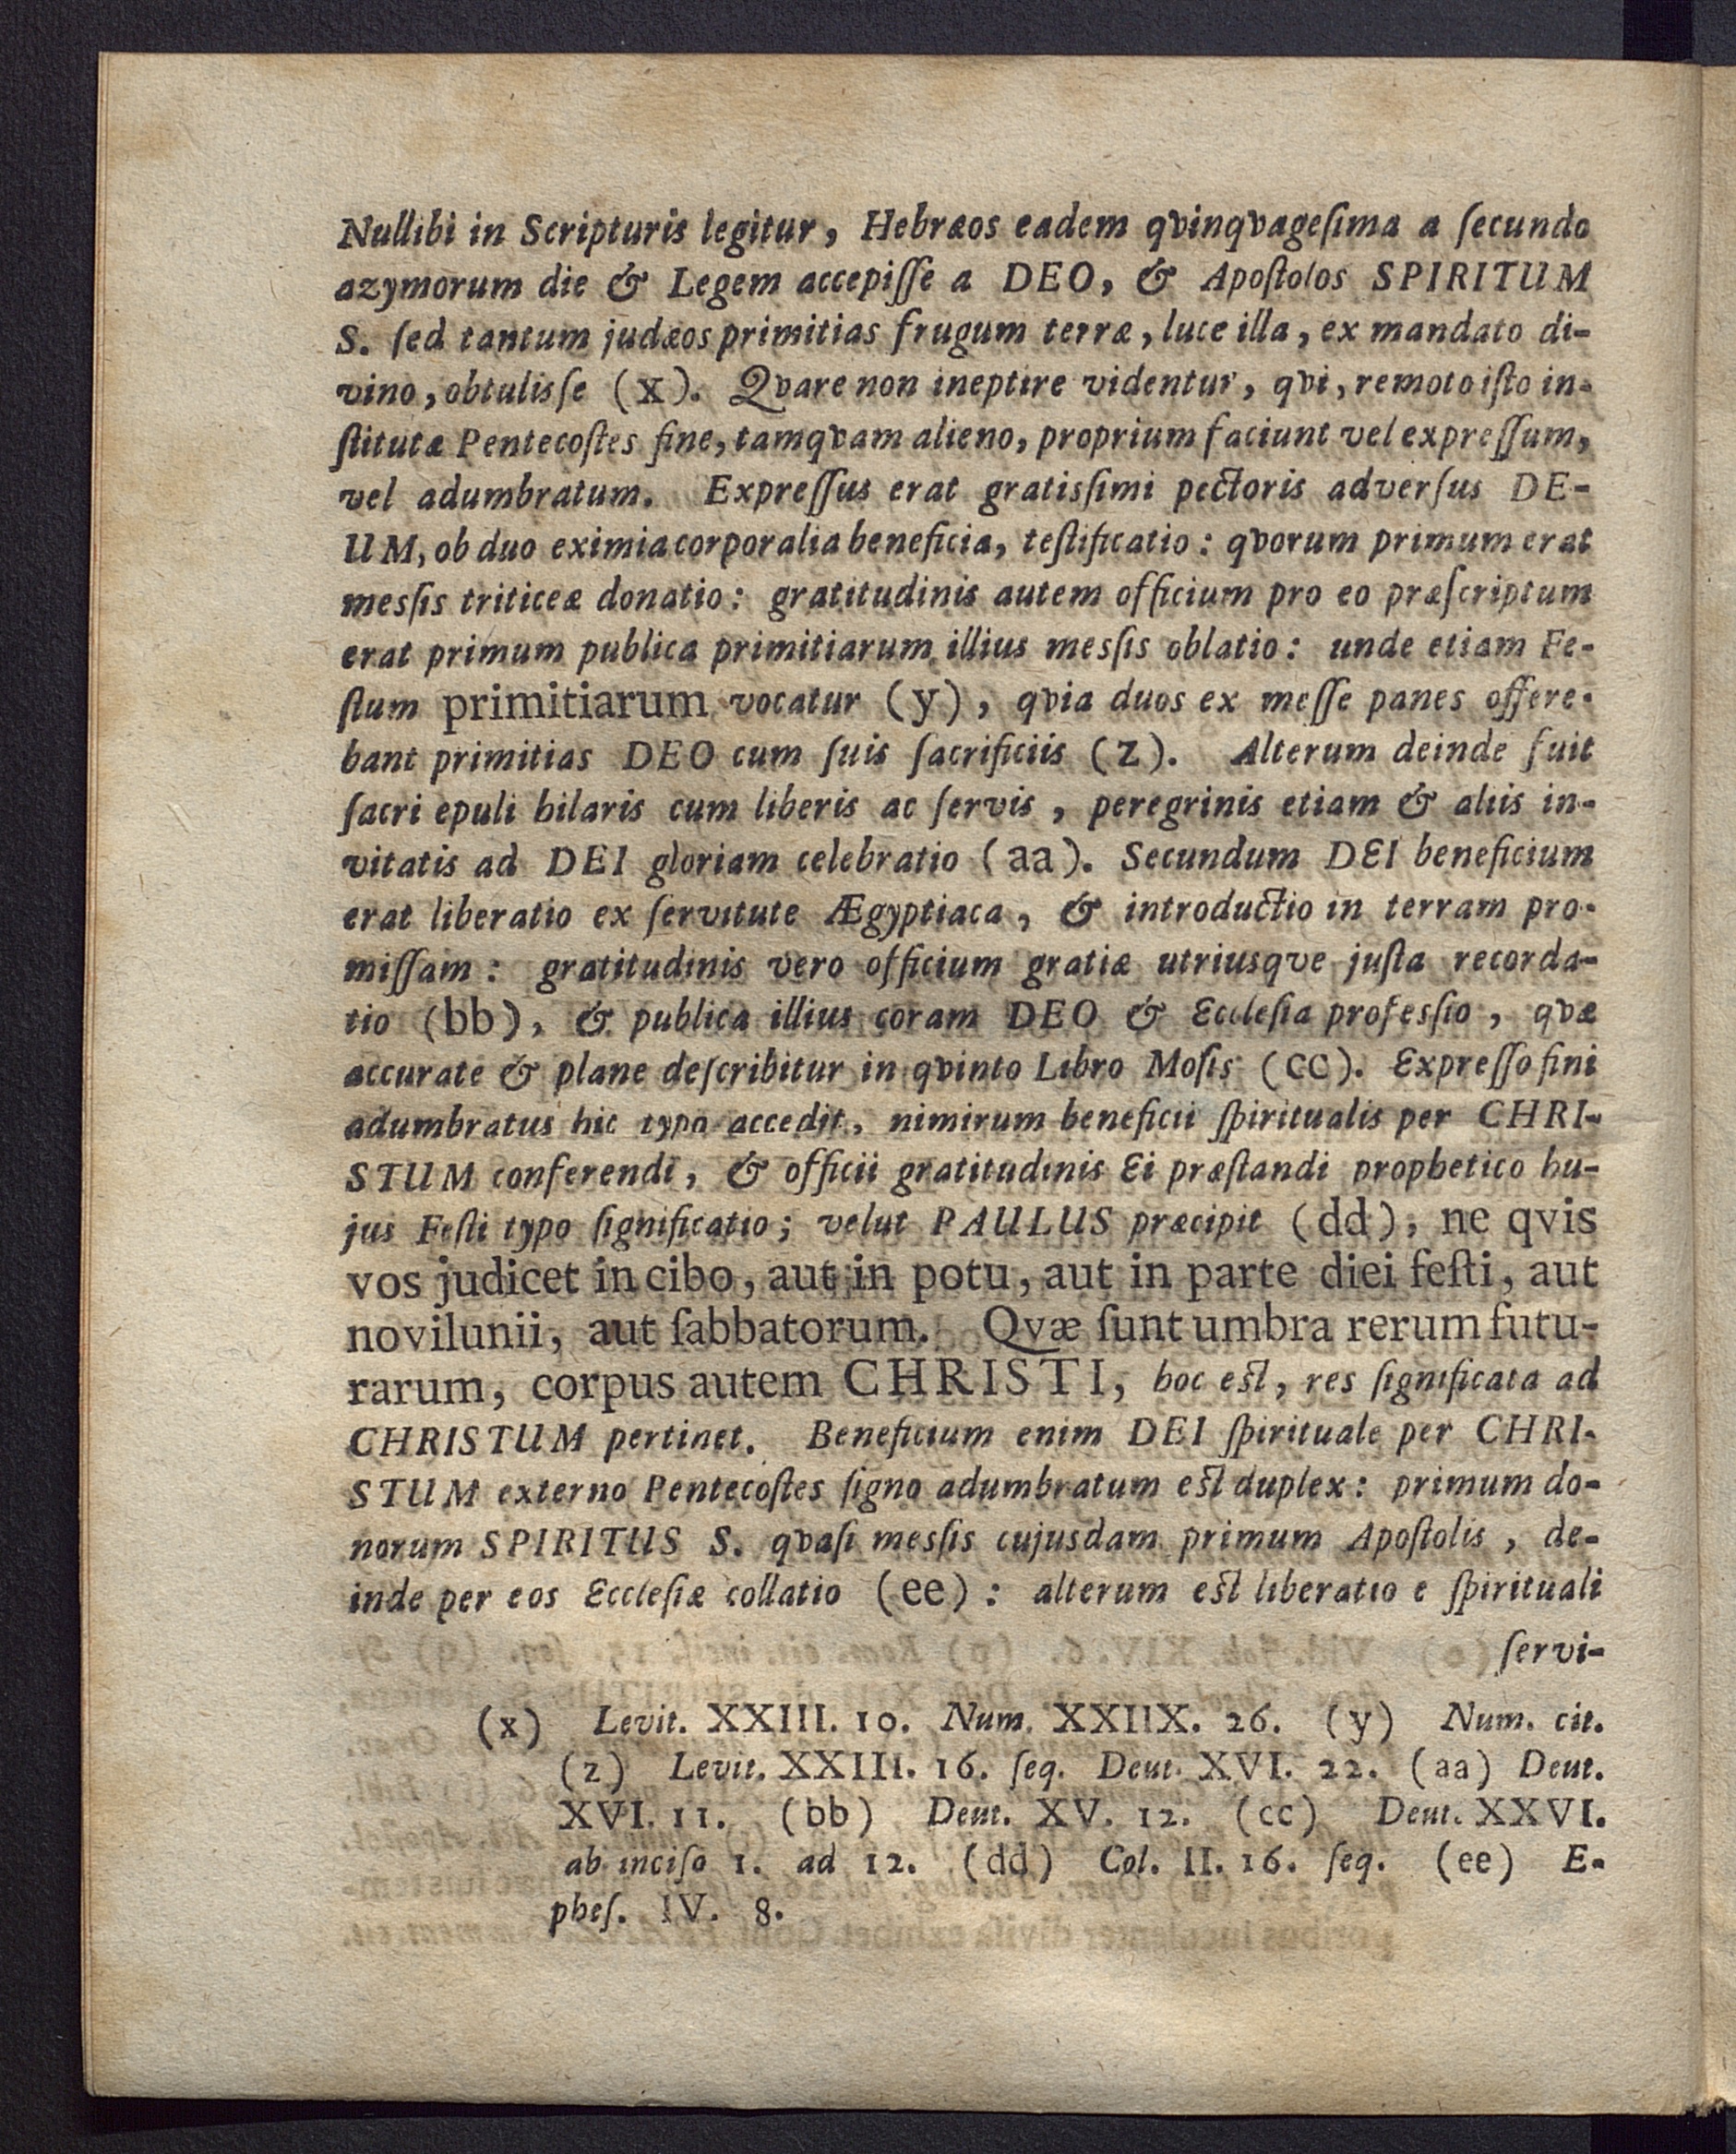 Nullibi in Scripturis legitur, Hebræos eadem qvinqvageſima a ſecundo
azymorum die & Legem accepiſſe a DEO, & Apoſtolos SPIRITUM
S. ſed tantum judæos primitias frugum terræ, luce illa, ex mandato di-
vino, obtulisſe (x). Qvare non ineptire videntur, qvi, remoto iſto in-
ſtitutæ Pentecoſtes fine, tamqvam alieno, proprium faciunt vel expreſſum,
vel adumbratum. Expreſſus erat gratisſimi pectoris adverſus DE-
UM, ob duo eximia corporalia beneficia, teſtificatio: qvorum primum erat
mesſis triticeæ donatio: gratitudinis autem officium pro eo præſcriptum
erat primum publica primitiarum illius mesſis oblatio: unde etiam Fe-
ſtum primitiarum vocatur (y), qvia duos ex meſſe panes offere-
bant primitias DEO cum ſuis ſacrificiis (z). Alterum deinde fuit
ſacri epuli hilaris cum liberis ac ſervis, peregrinis etiam & aliis in-
vitatis ad DEI gloriam celebratio (aa). Secundum DEI beneficium
erat liberatio ex ſervitute Ægyptiaca, & introductio in terram pro-
miſſam: gratitudinis vero officium gratiæ utriusqve juſta recorda-
tio (bb), & publica illius coram DEO & Eccleſia profesſio, qvæ
accurate & plane deſcribitur in qvinto Libro Moſis (cc). Expreſſo fini
adumbratus hic typo accedit, nimirum beneficii ſpiritualis per CHRI-
STUM conferendi, & officii gratitudinis Ei præſtandi prophetico hu-
jus Feſti typo ſignificatio; velut PAULUS præcipit (dd), ne qvis
vos judicet in cibo, aut in potu, aut in parte diei feſti, aut
novilunii, aut ſabbatorum. Qvæ ſunt umbra rerum futu-
rarum, corpus autem CHRISTI, hoc eſt, res ſignificata ad
CHRISTUM pertinet. Beneficium enim DEI ſpirituale per CHRI-
STUM externo Pentecoſtes ſigno adumbratum eſt duplex: primum do-
norum SPIRITUS S. qvaſi mesſis cujusdam primum Apoſtolis, de-
inde per eos Eccleſiæ collatio (ee): alterum eſt liberatio e ſpirituali
ſervi-
(x) Levit. XXIII. 10. Num. XXIIX. 26. (y) Num. cit.
(z) Levit. XXIII. 16. ſeq. Deut. XVI. 22. (aa) Deut.
XVI. 11. (bb) Deut. XV. 12. (cc) Deut. XXVI.
ab inciſo 1. ad 12. (dd) Col. II. 16. ſeq. (ee) E-
pheſ. IV. 8.